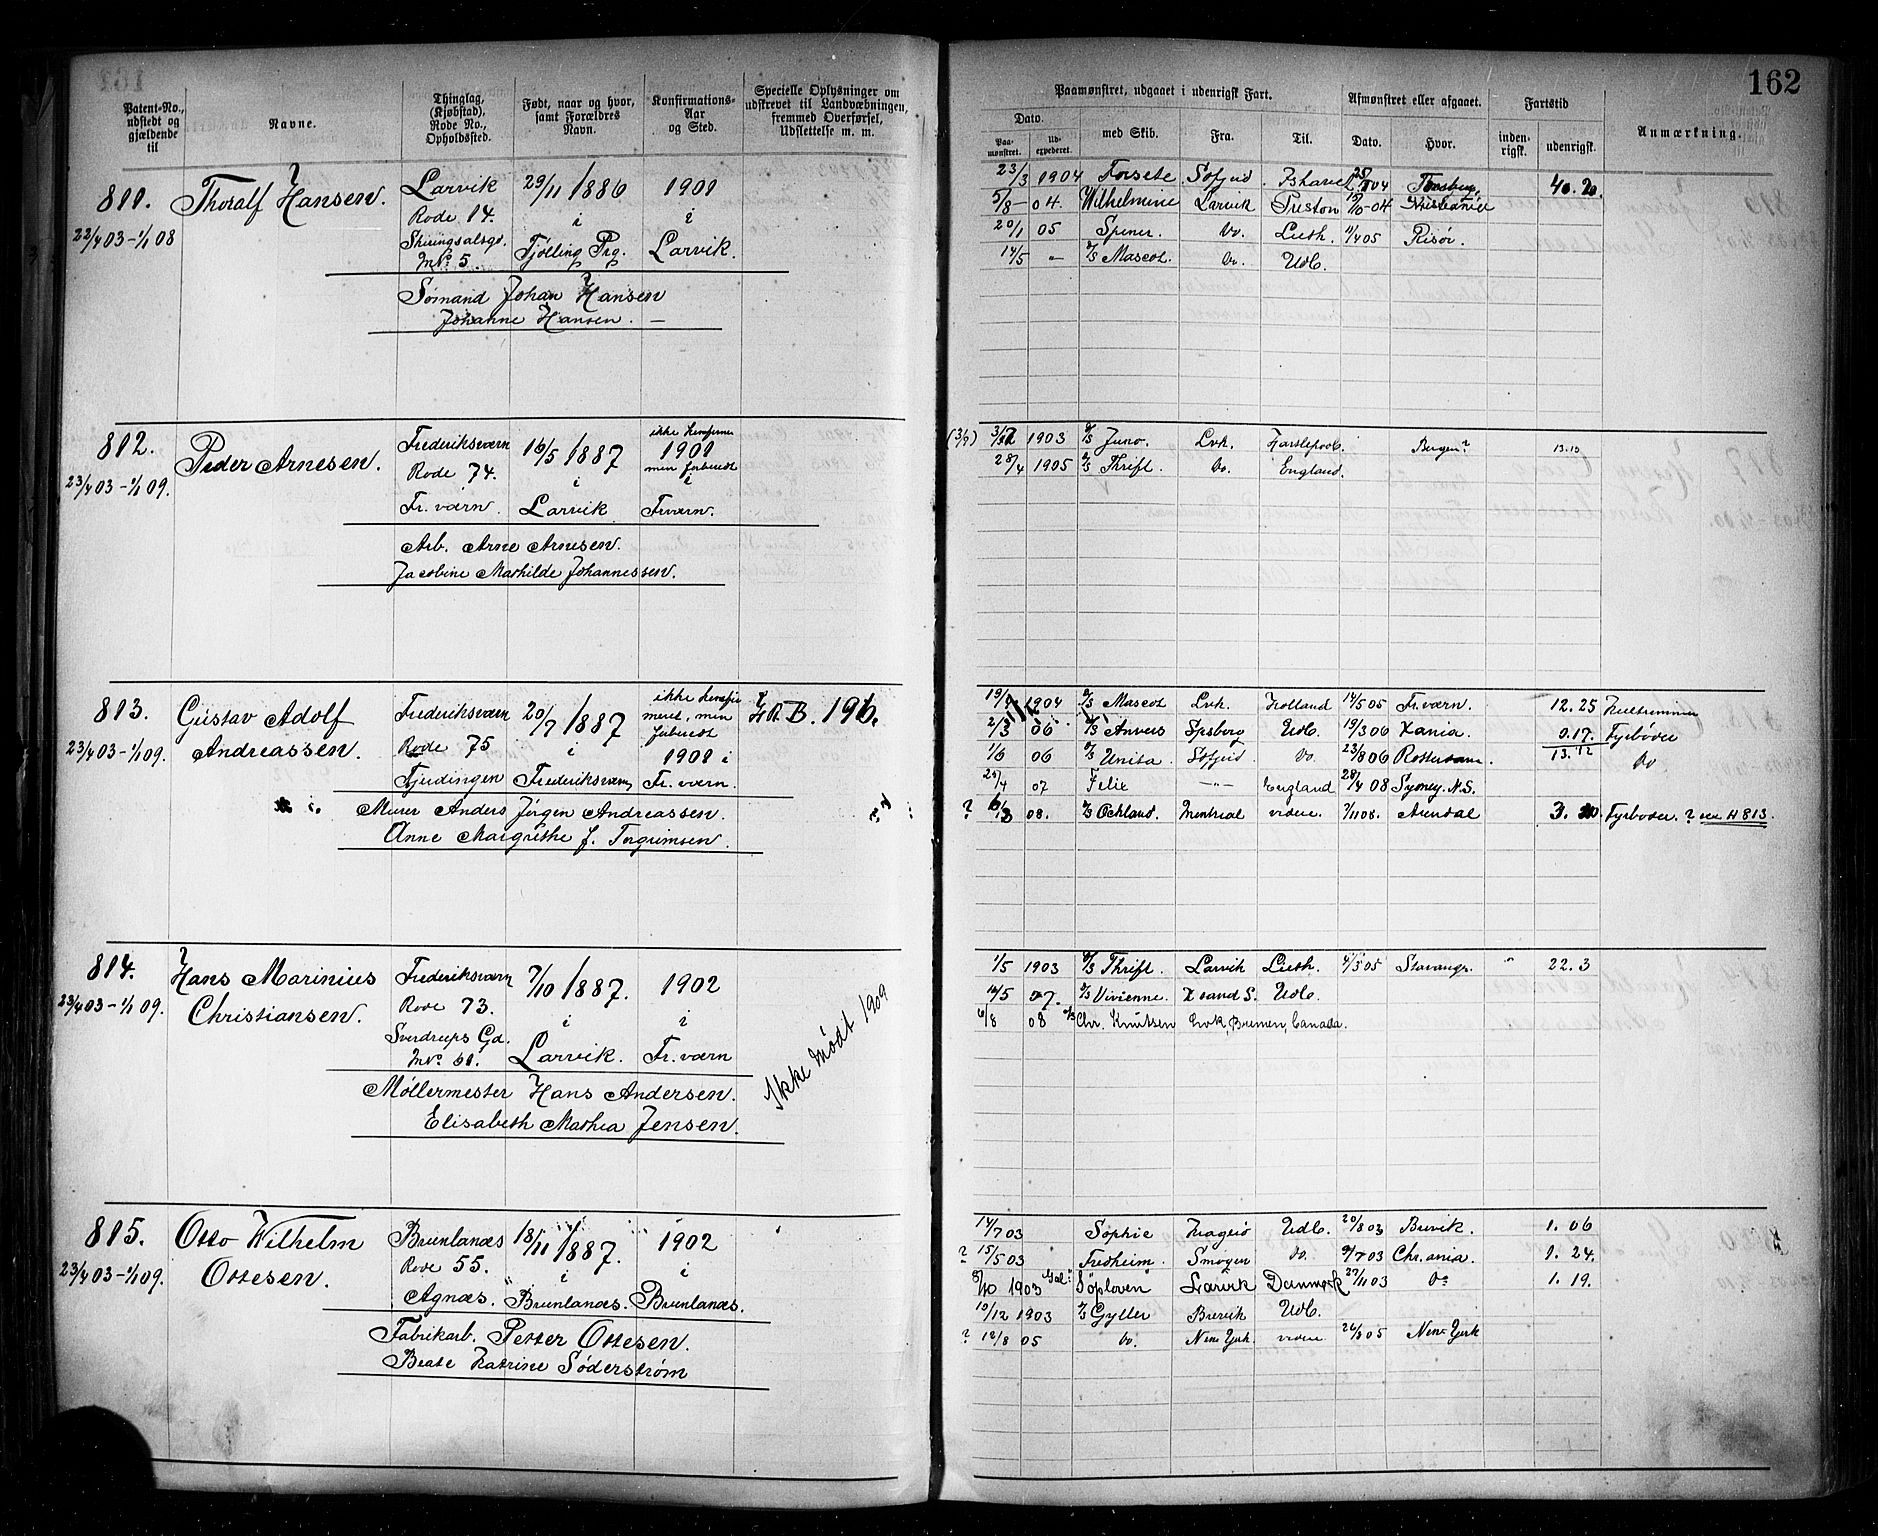 162
Patent-No., udstedt og gjældende til
Navne.
Thinglag, (Kjøbstad), Rode No., Opholdssted.
Født, naar og hvor, samt Forældres Navn.
Konfirmations-Aar og Sted.
Specielle Oplysninger om udskrevet til Landvæbningen, fremmed Overførsel, Udslettelse m. m.
Paamønstret, udgaaet i udenrigsk Fart.
Dato.
Paa-mønstret.
Ud-expederet.
med Skib.
Fra.
Til.
Afmønstret eller afgaaet.
Dato.
Hvor.
Fartstid
inden-rigsk.
udenrigsk.
Anmærkning.
811. Thoralf Hansen. Larvik 29/11 1886 1901
Rode 14. i i
22/4 03-1/1 08 Skiringsalsgd. Tjølling Prg. Larvik.
MNo 5.
Sømand Johan Hansen
Johanne Hansen. —
23/3 1904 Forsete Sofjrd
5/8 - 04. Wilhelmine Larvik Preston 04
20/1 05 Spener. Do. Lieth. 11/4 05 Risør.
14/5 - D/S Mascot Do. Udl.
812. Peder Arnesen. Frederiksværn 16/5 1887 1901
Rode 74. i men forberedt i
23/4 03-1/1 09. Fr. værn. Larvik Fr.værn.
Arb. Arne Arnesen.
Jacobine Mathilde Johannessen.
(3/7) 1903 D/S Juno. Lvk. Bergen? 13.10
28/4 1905 D/S Thrift. Do. England.
813. Gustav Adolf Frederiksværn 20/7 1887 ikke konfirmeret, men forberedt
23/4 03-1/1 09. Andreassen. Rode 75 i 1901 i
Tjudingen Frederiksværn Fr. værn.
Murer Anders Jørgen Andreassen.
Anne Margrethe f. Torgrimsen.
1904 D/S Mascot Lvk. Holland 14/5 05 Fr.værn. 12.25
2/3 06 D/S Anvers Spsborg Udl. 19/3 06 Xania. 0.17. Fyrbøder
13.12
1/6 06 D/S Unita Sofjrd Do. 23/8 06 Rotterdam. Do
07 Felix -"- England 28/4 08 Sydney. N.S.
? 08. Montreal videre. 7/11 08. Arendal Fyrbøder. ? 813.
814. Hans Marinius Frederiksværn 7/10 1887. 1902
23/4 03-1/1 09. Christiansen. Rode 73. i i
Sverdrups Gd. Larvik. Fr. værn
MNo
Ikke mødt 1909
Møllermester Hans Andersen.
Elisabeth Mathea Jensen.
1/5 1903 D/S Thrift. Larvik Lieth. 05 Stavangr. " 22.3
14/5 07. D/S Vivienne. Xsand S. Udl.
6/8 08 D/S Chr. Knutsen Lvk, Bremen, Canada.
815. Otto Wilhelm Brunlanæs 18/11 1887. 1902
23/4 03-1/1 09. Ottesen. Rode 55. i i
Agnæs. Brunlanæs. Brunlanæs.
Fabrikarb. Petter Ottesen.
Beate Katrine Söderstrøm
14/7 03 Sophie Udl. 20/8 03 Brevik. 1. 06
? 15/5 03 Fredheim. Smøgen do. 9/7 03 Chr.ania. 1. 24.
1903 Gal: "Søploven" Larvik Danmark 27/11 03 Do 1. 19.
10/12 1903 D/S Gyller Brevik Udl.
? 12/8 05 Do. New York. videre 26/8 05 New York